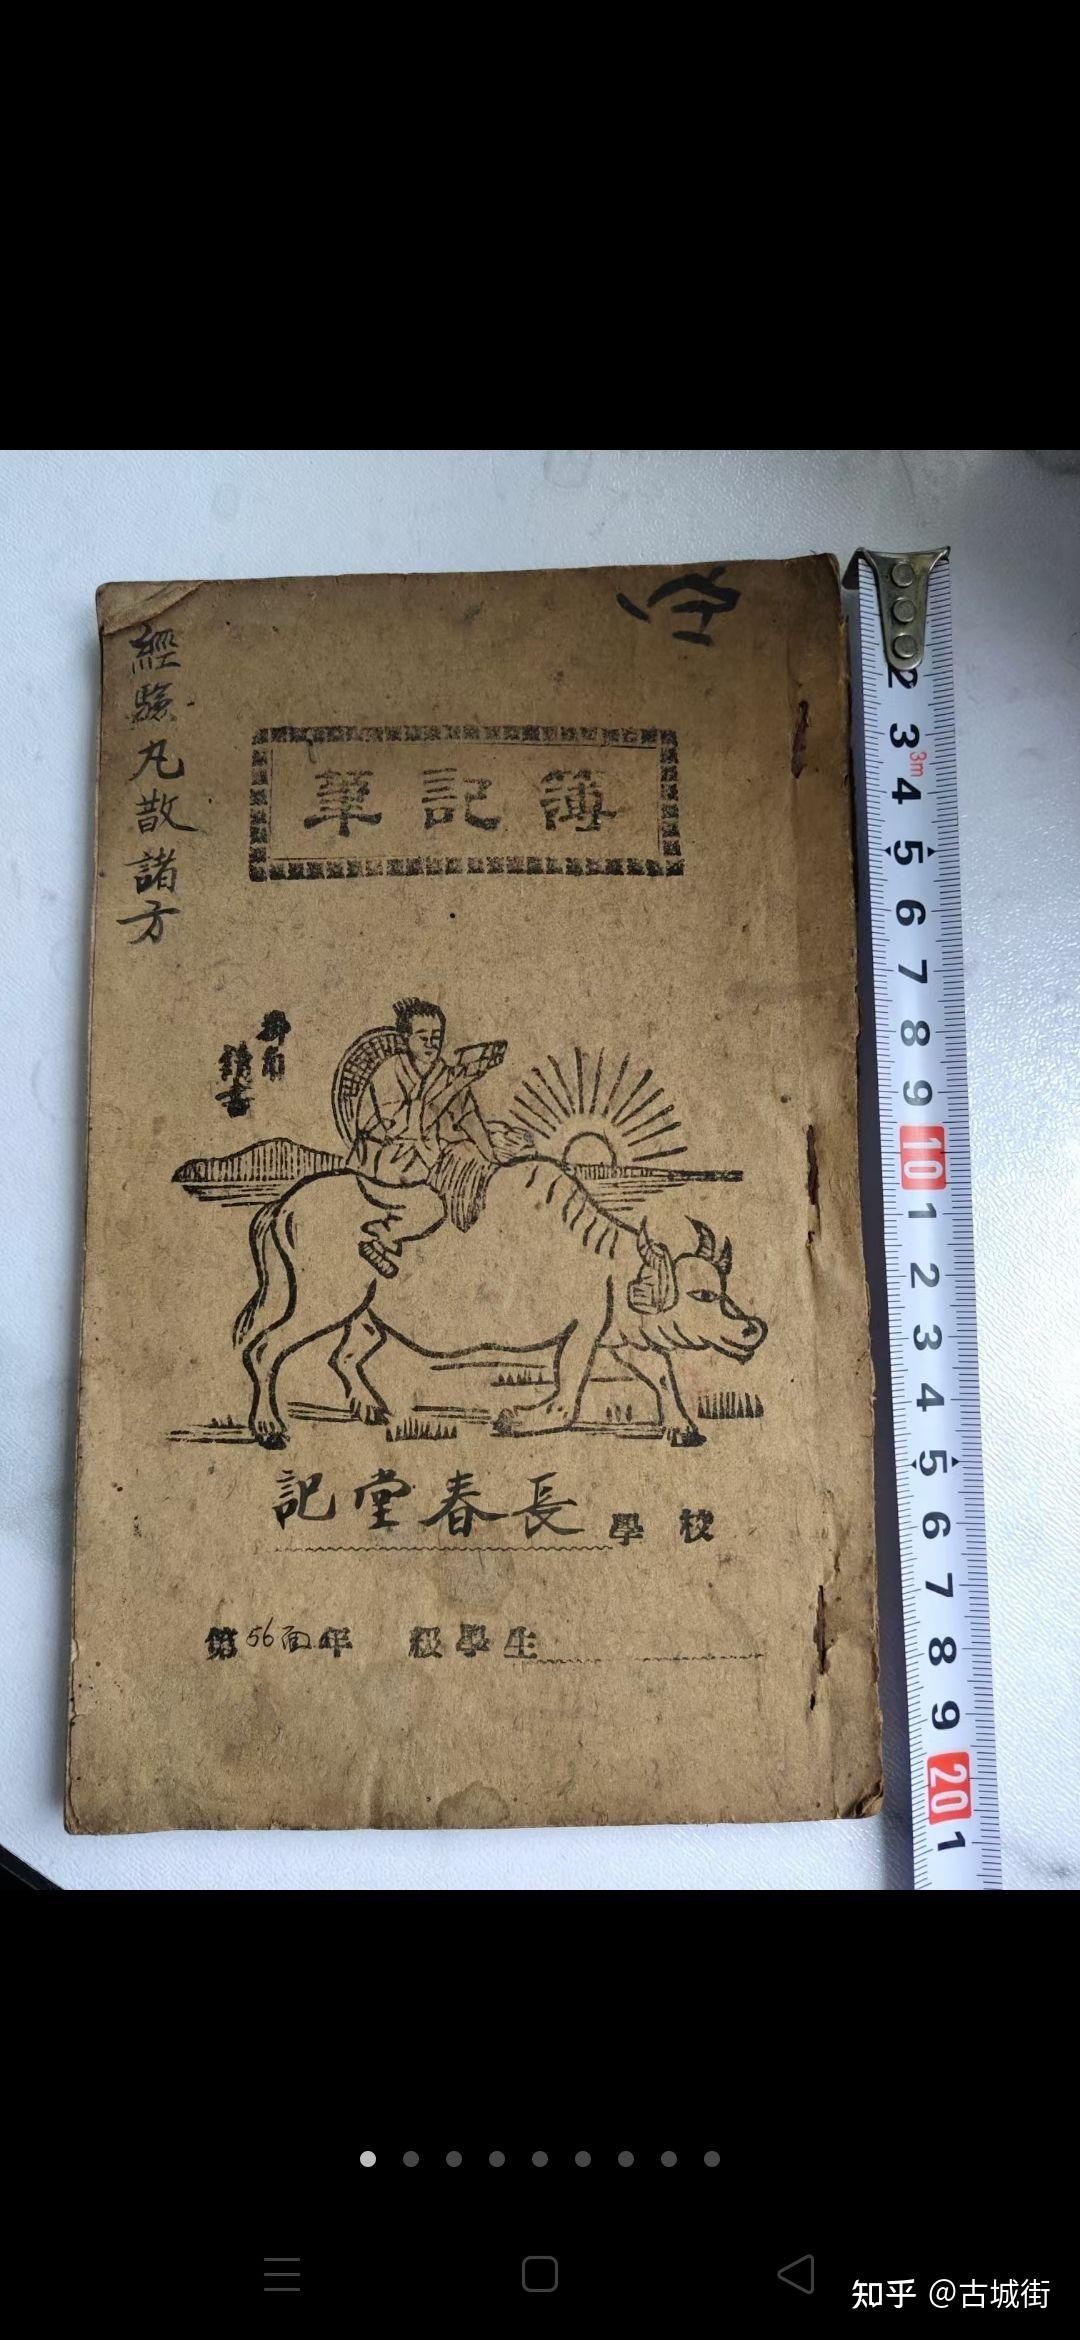 經驗丸散諸方
筆記簿
角
讀書
長春堂記 學校
第56面年 級學生
2 3 3m 4 5 6 7 8 9 10 1 2 3 4 5 6 7 8 9 20 1
知乎 @古城街